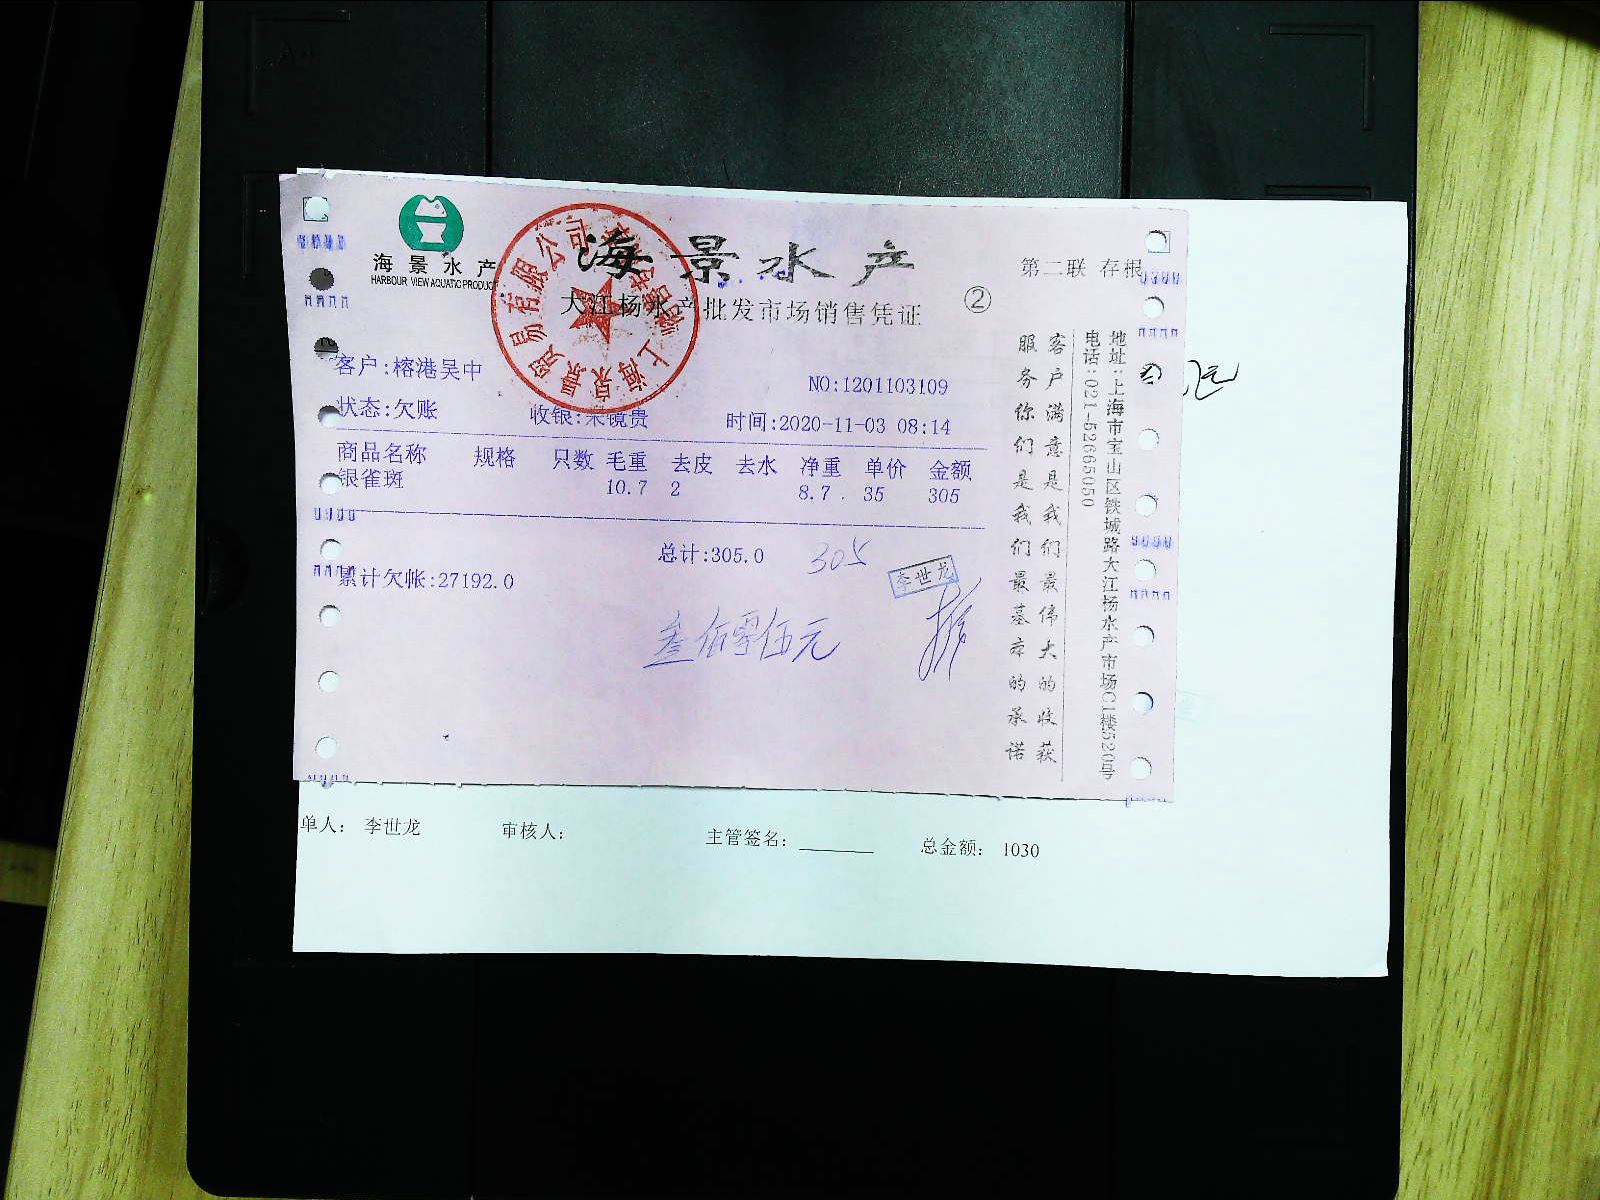 海景水产
HARBOUR VIEW AQUATIC PRODUCT
海景水产
第二联 存根
大江杨水产批发市场销售凭证
②
客户:榕港吴中
NO:1201103109
状态:欠账 收银:朱镜贵 时间:2020-11-03 08:14
商品名称 规格 只数 毛重 去皮 去水 净重 单价 金额
银雀斑 10.7 2 8.7 35 305
总计:305.0 305
累计欠帐:27192.0
李世龙
叁佰零伍元
客户满意是我们最伟大的收获
服务你们是我们最基本的承诺
地址:上海市宝山区铁城路大江杨水产市场C1楼520号
电话:021-52665050
单人: 李世龙 审核人: 主管签名: 总金额: 1030